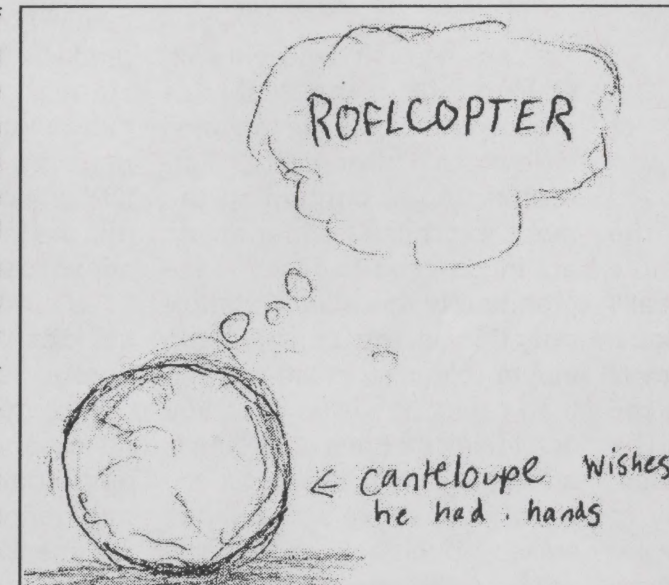 ROFLCOPTER
← canteloupe wishes
he had hands